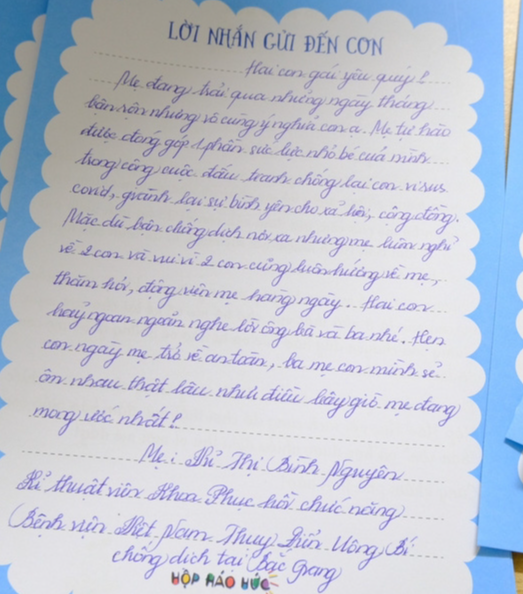 LỜI NHẮN GỬI ĐẾN CON
Hai con gái yêu quý!
Mẹ đang trải qua những ngày tháng
bận rộn nhưng vô cùng ý nghĩa con ạ. Mẹ tự hào
được đóng góp 1 phần sức lực nhỏ bé của mình
trong công cuộc đấu tranh chống lại con virus
covid, giành lại sự bình yên cho xã hội, cộng đồng.
Mặc dù bận chống dịch nơi xa nhưng mẹ luôn nghĩ
về 2 con và vui vì 2 con cũng luôn hướng về mẹ,
thăm hỏi, động viên mẹ hàng ngày.. Hai con
hãy ngoan ngoãn nghe lời ông bà và ba nhé. Hẹn
con ngày mẹ trở về an toàn, ba mẹ con mình sẽ
ôm nhau thật lâu như điều bây giờ mẹ đang
mong ước nhất!
Mẹ: Thị Bình Nguyên
Kĩ thuật viên Khoa Phục hồi chức năng
Bệnh viện Việt Nam Thụy Điển Uông Bí
chống dịch tại Bắc Giang
HỘP HÁO HỨC